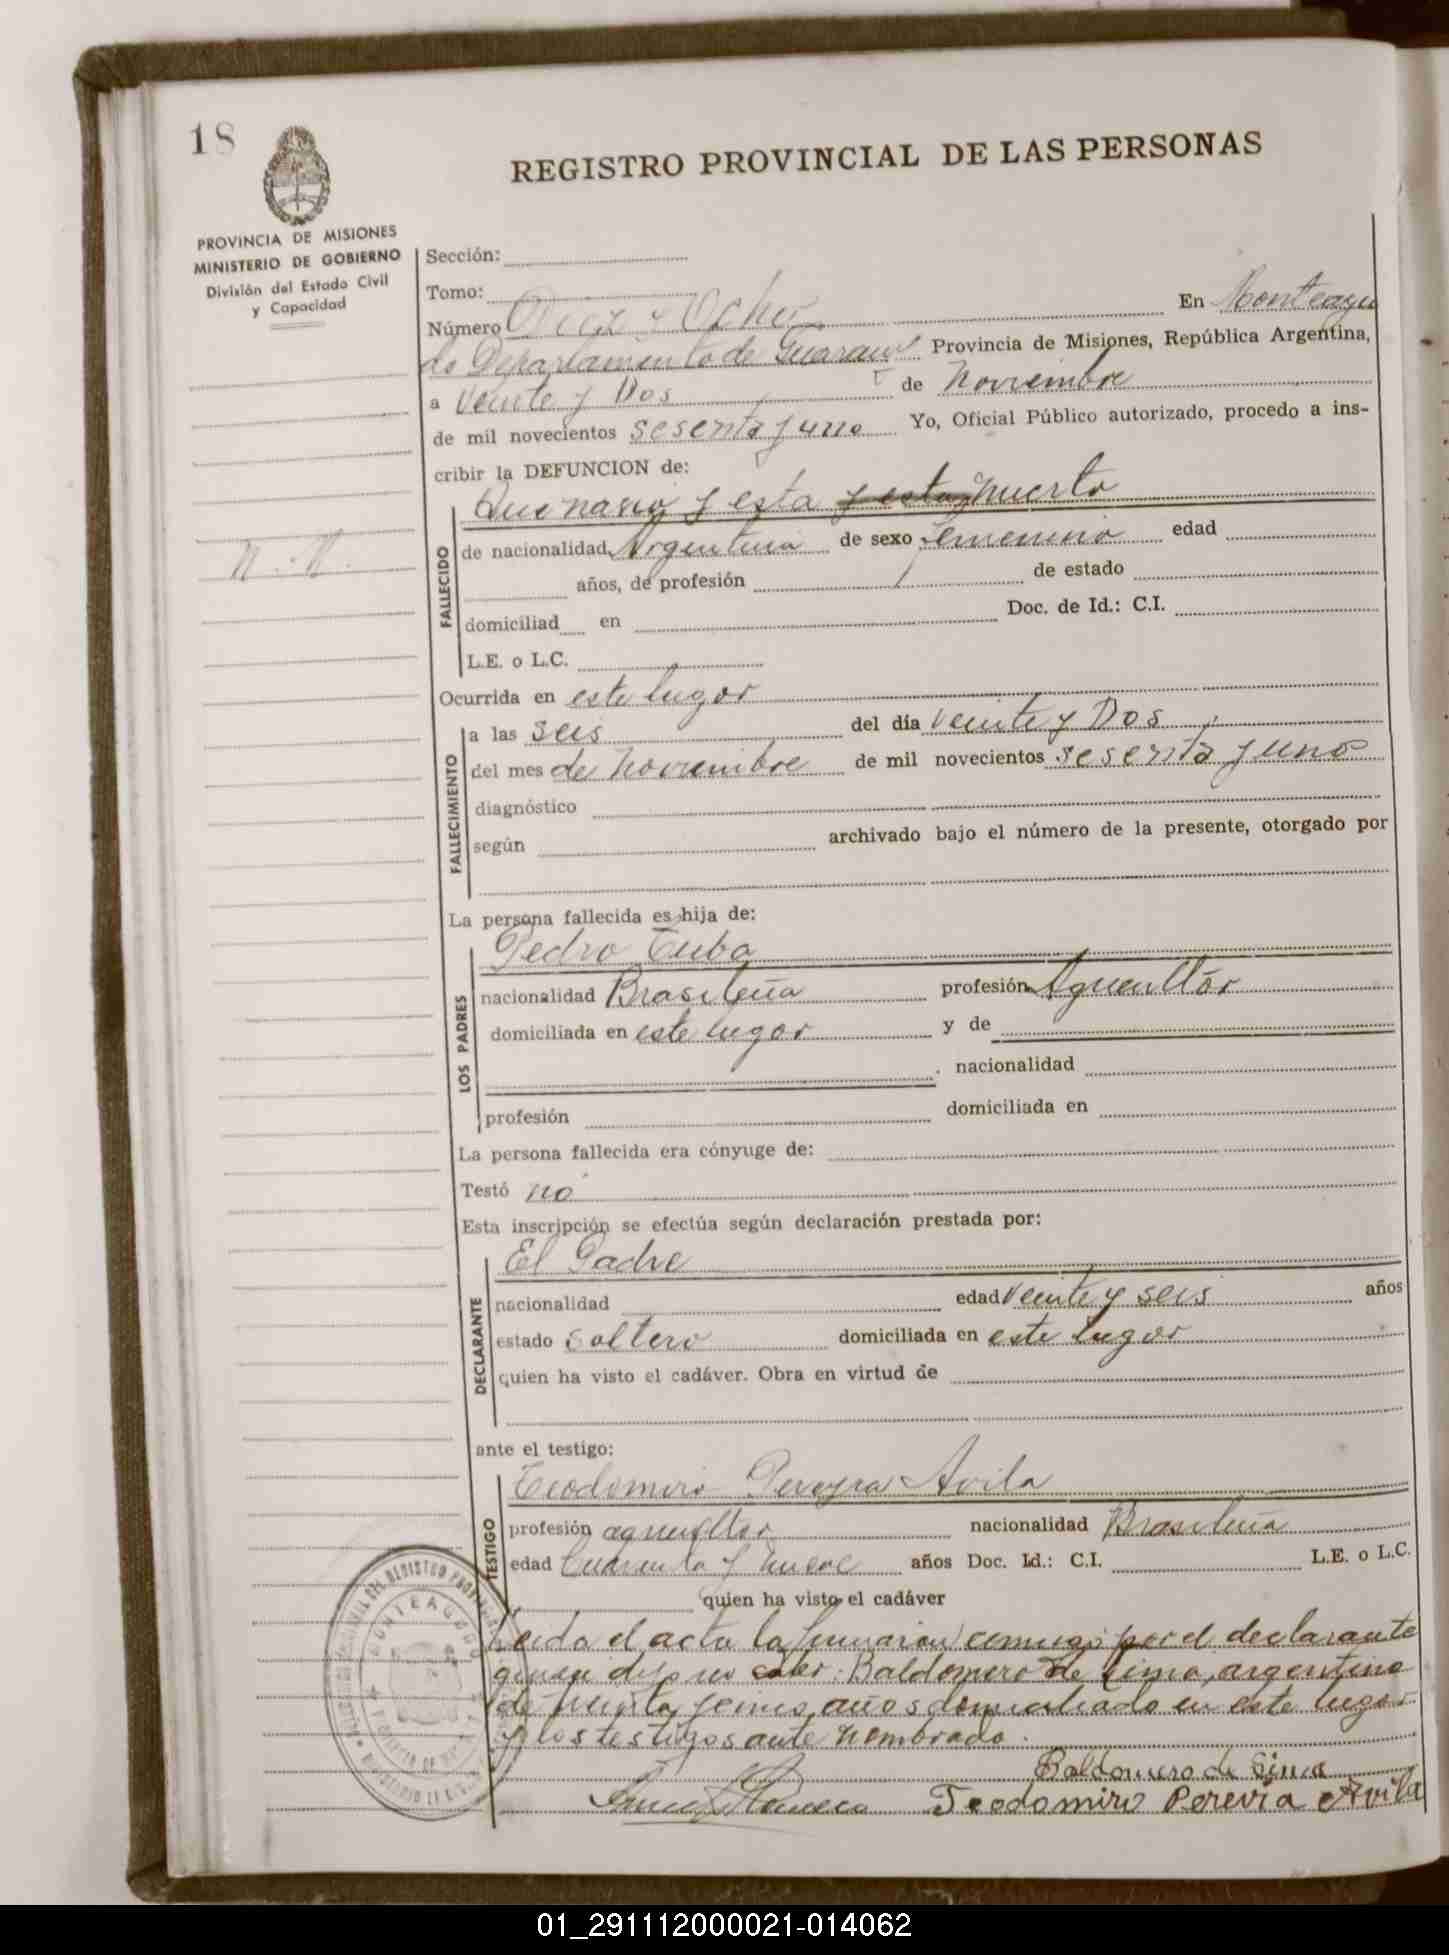 18
REGISTRO PROVINCIAL DE LAS PERSONAS
PROVINCIA DE MISIONES
MINISTERIO DE GOBIERNO
División del Estado Civil
y Capacidad
N. N.
Sección:
Tomo:
Número Diez y Ocho En Monteagu
do Departamento de Guaraní Provincia de Misiones, República Argentina,
a veinte y Dos de Noviembre
de mil novecientos sesenta y uno Yo, Oficial Público autorizado, procedo a ins-
cribir la DEFUNCION de:
FALLECIDO
Que nacio y esta y esta muerto
de nacionalidad Argentina de sexo femenino edad
años, de profesión de estado
domiciliad en Doc. de Id.: C.I.
L.E. o L.C.
Ocurrida en este lugar
FALLECIMIENTO
a las seis del día veinte y Dos
del mes de Noviembre de mil novecientos sesenta y uno
diagnóstico
según archivado bajo el número de la presente, otorgado por
La persona fallecida es hija de:
LOS PADRES
Pedro Cuba
nacionalidad Brasileña profesión Agricultor
domiciliada en este lugar y de
nacionalidad
profesión domiciliada en
La persona fallecida era cónyuge de:
Testó no
Esta inscripción se efectúa según declaración prestada por:
DECLARANTE
El Padre
nacionalidad edad veinte y seis años
estado soltero domiciliada en este lugar
quien ha visto el cadáver. Obra en virtud de
ante el testigo:
TESTIGO
Teodomiro Pereyra Avila
profesión agricultor nacionalidad Brasileña
edad Cuarenta y nueve años Doc. Id.: C.I. L.E. o L.C.
quien ha visto el cadáver
Leida el acta la firmaron conmigo por el declarante
quien dijo no saber: Baldomero de Lima, argentino
de años domiciliado en este lugar
y los testigos ante nombrado.
Baldomero de Lima
Teodomiro Pereira Avila
MONTEAGUDO
01_291112000021-014062